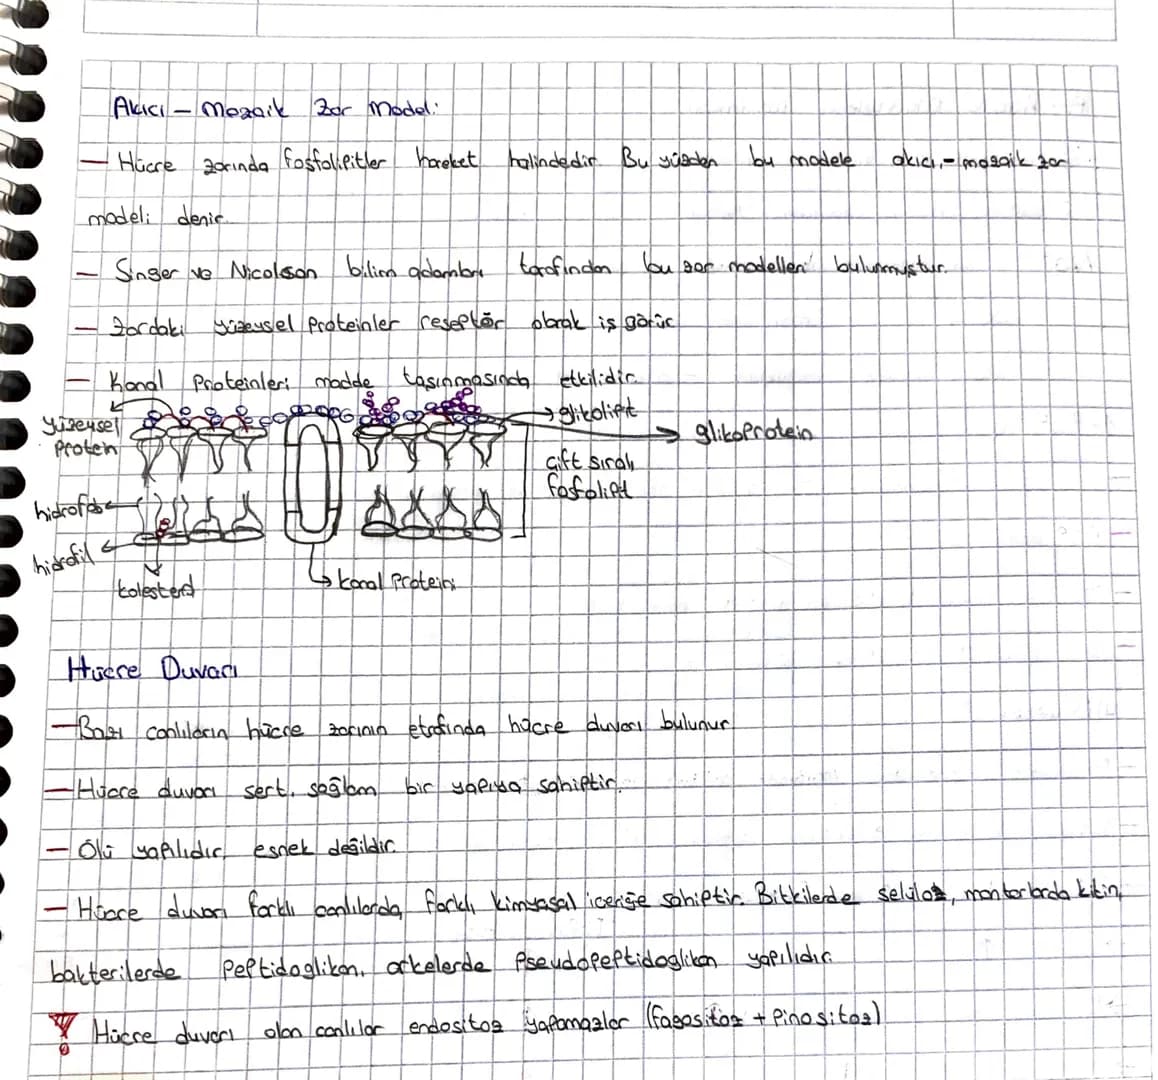 Akıcı - Mozaik Zar Modeli
— Hücre zarında fosfolipitler hareket halindedir. Bu yüzden bu modele akıcı - mozaik zar
modeli denir.
— Singer ve Nicolson bilim adamları tarafından bu zar modelleri bulunmuştur.
— Zardaki yüzeysel proteinler reseptör olarak iş görür.
— Kanal proteinleri madde taşınmasında etkilidir.
yüzeysel
protein
glikolipit
glikoprotein
çift sıralı
fosfolipit
hidrofob
hidrofil
kolesterol
kanal proteini
Hücre Duvarı
— Bazı canlıların hücre zarının etrafında hücre duvarı bulunur.
— Hücre duvarı sert, sağlam bir yapıya sahiptir.
— Ölü yapılıdır, esnek değildir.
— Hücre duvarı farklı canlılarda, farklı kimyasal içeriğe sahiptir. Bitkilerde selüloz, mantarlarda kitin,
bakterilerde peptidoglikan, arkelerde pseudopeptidoglikan yapılıdır.
! Hücre duvarı olan canlılar endositoz yapamazlar (fagositoz + pinositoz)